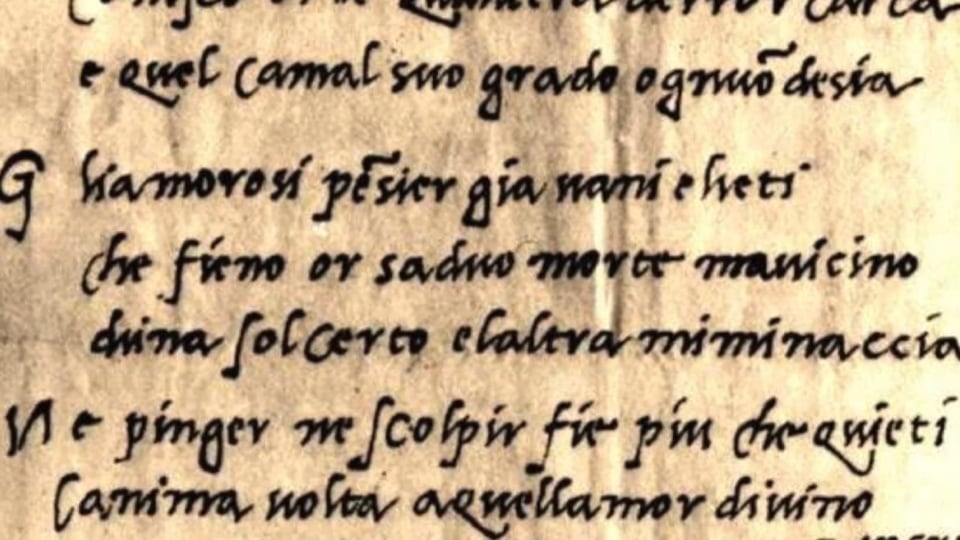 e quel camal suo grado ognuō desia
Gliamorosi pēsier gia uani e lieti
che fieno or saduo morte mauicino
duina sol certo elaltra miminaccia
Ne pinger ne scolpir fie piu che quieti
lanima uolta aquellamor diuino